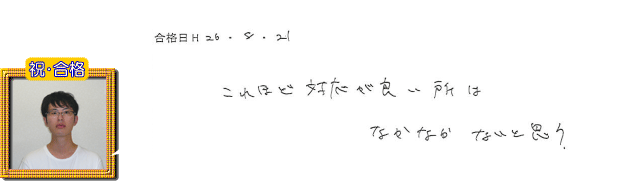 合格日 H 26 . 8 . 21
祝・合格
これほど対応が良い所は
なかなかないと思う。